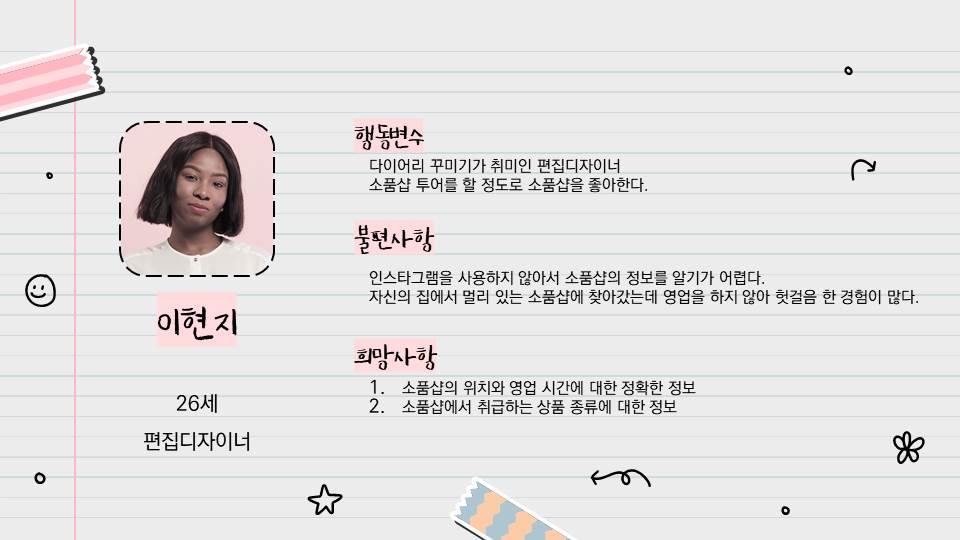 행동변수
다이어리 꾸미기가 취미인 편집디자이너
소품샵 투어를 할 정도로 소품샵을 좋아한다.
불편사항
인스타그램을 사용하지 않아서 소품샵의 정보를 알기가 어렵다.
자신의 집에서 멀리 있는 소품샵에 찾아갔는데 영업을 하지 않아 헛걸음 한 경험이 많다.
이현지
희망사항
1. 소품샵의 위치와 영업 시간에 대한 정확한 정보
2. 소품샵에서 취급하는 상품 종류에 대한 정보
26세
편집디자이너